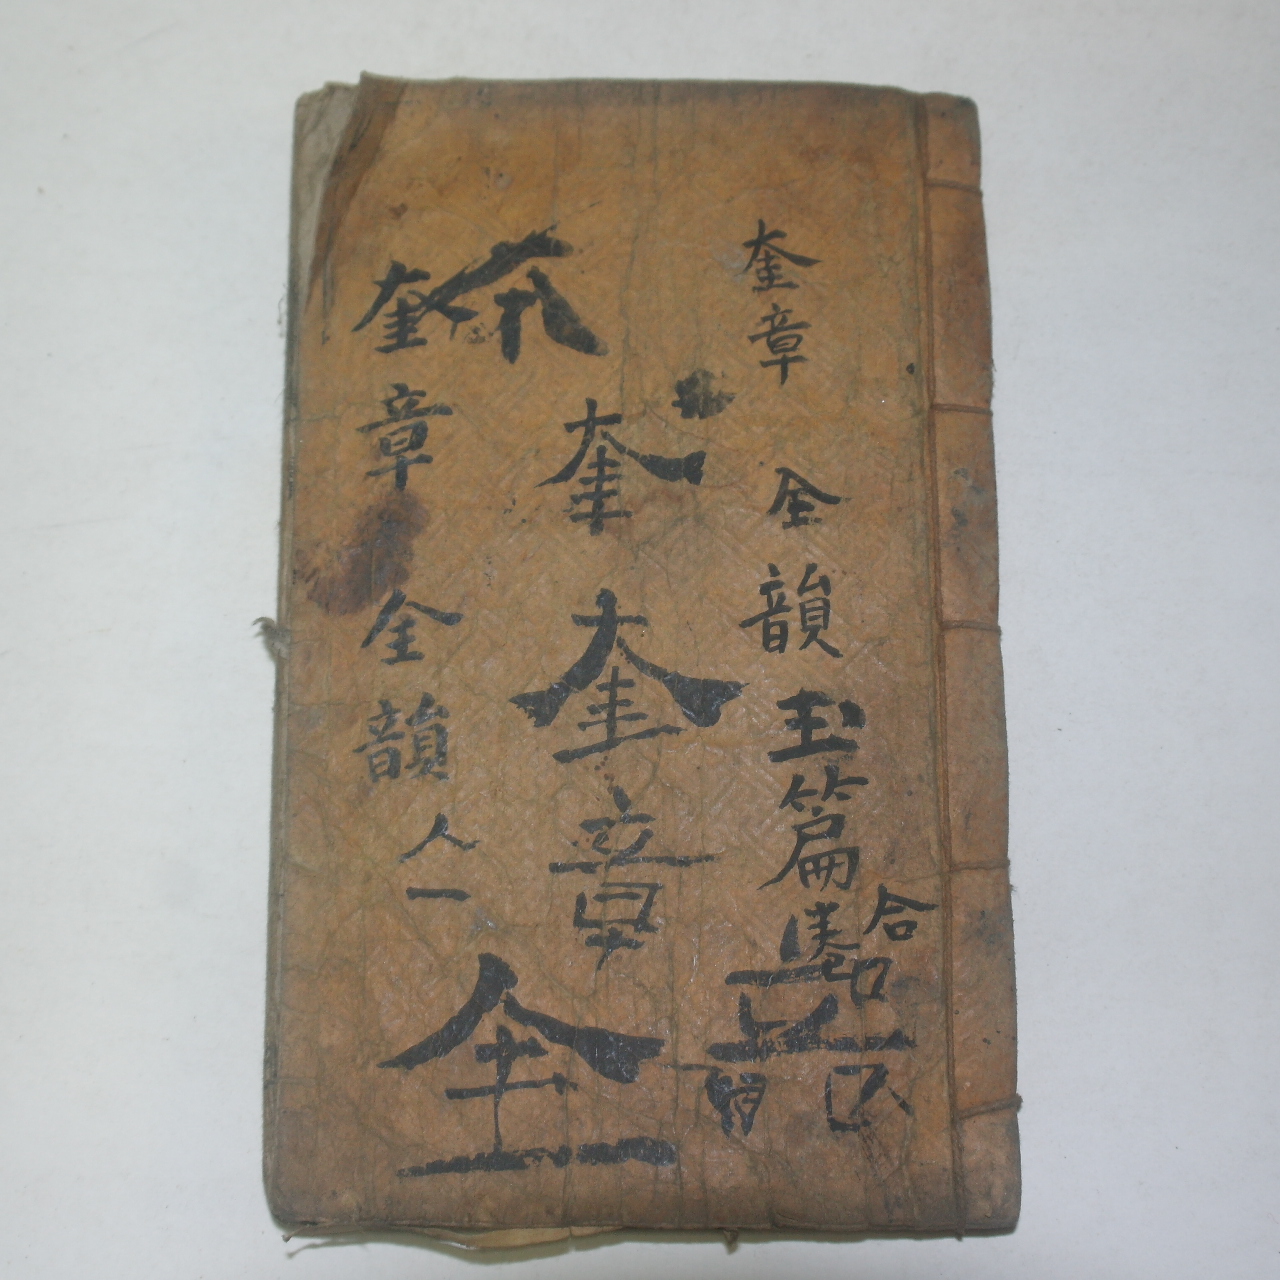 奎章 全韻玉篇
合
奎奎章全
奎章全韻